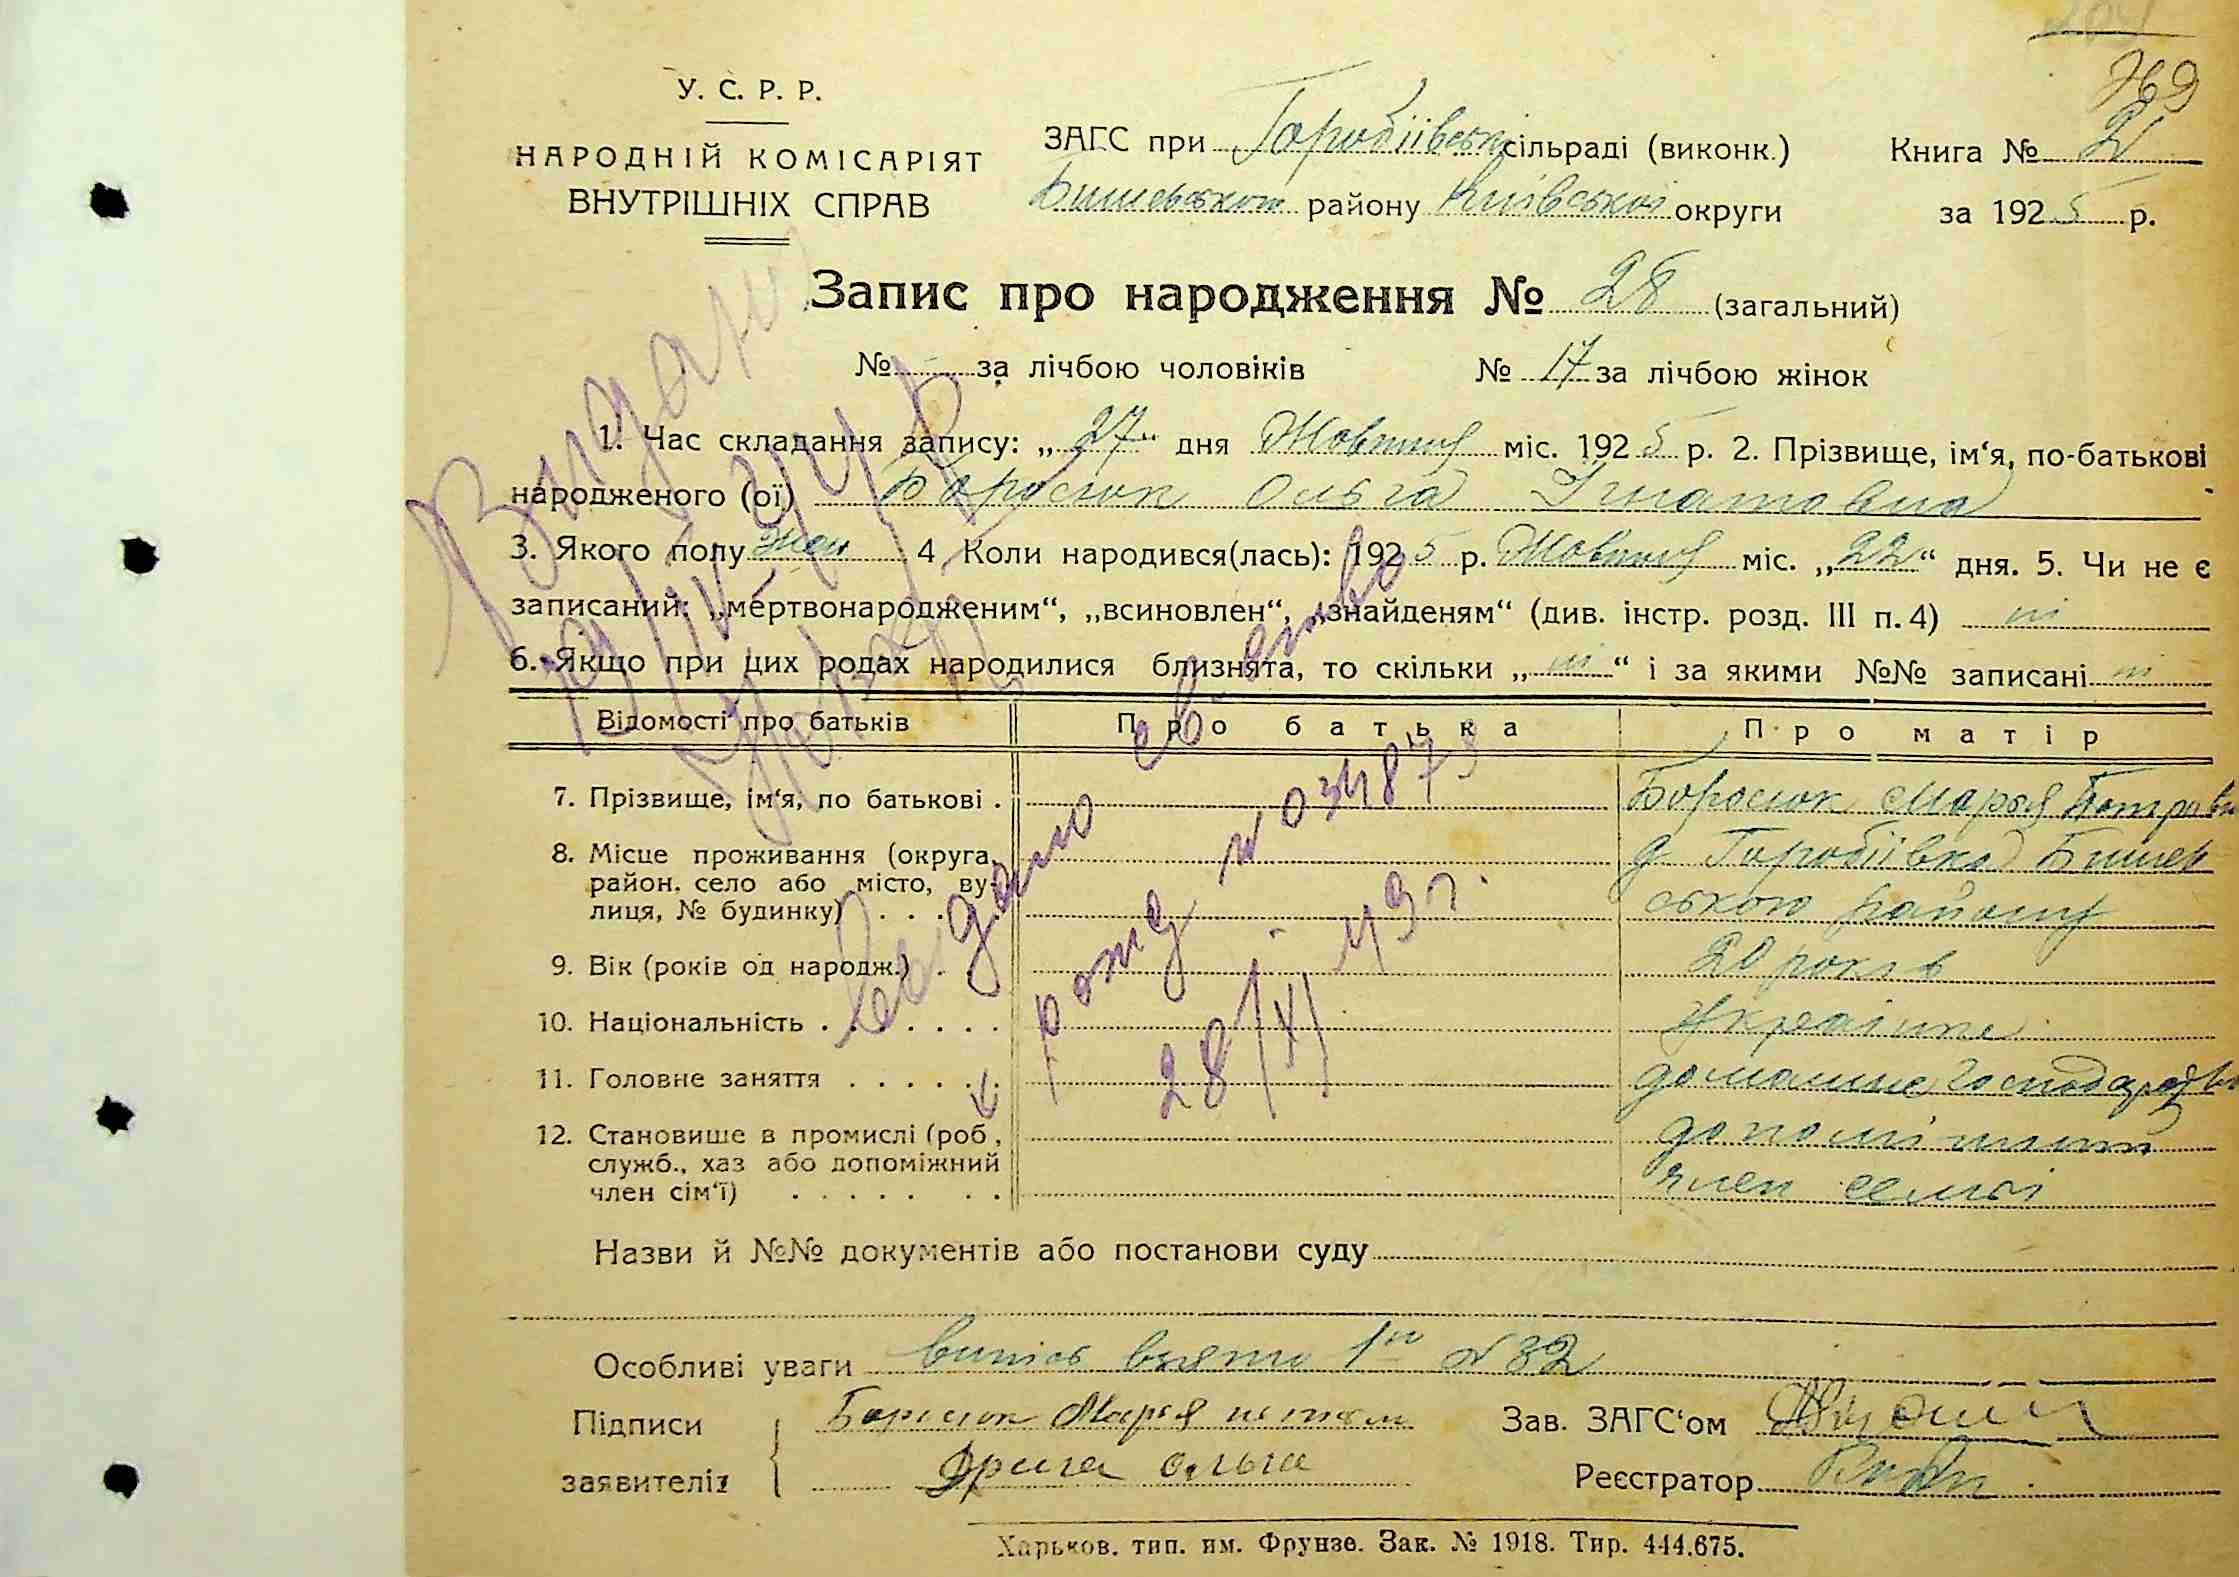 769
У. С. Р. Р.
НАРОДНІЙ КОМІСАРІЯТ
ВНУТРІШНІХ СПРАВ
ЗАГС при Горобіївські сільраді (виконк.)
Книга № 2
Бишевського району Київської округи
за 1925 р.
Запис про народження № 28 (загальний)
№ за лічбою чоловіків № 17 за лічбою жінок
1. Час складання запису: „27“ дня Жовтня міс. 1925 р. 2. Прізвище, ім‘я, по-батькові
народженого (ої) Борисюк Ольга Ігнатовна
3. Якого полу жен 4 Коли народився(лась): 1925 р. Жовтня міс. „22“ дня. 5. Чи не є
записаний: „мертвонародженим“, „всиновлен“, „знайденям“ (див. інстр. розд. III п. 4) ні
6. Якщо при цих родах народилися близнята, то скільки „ні“ і за якими №№ записані ні
Відомості про батьків Про батька Про матір
7. Прізвище, ім‘я, по батькові . Борисюк Марья Петровна
8. Місце проживання (округа, район, село або місто, ву-
лиця, № будинку) . . . .
д Горобіївка Бишев
ського району
9. Вік (років од народж.) . . 20 років
10. Національність . . . . . . . Українка
11. Головне заняття . . . . . . домашнє господарство
12. Становише в промислі (роб., служб., хаз або допоміжний
член сім‘ї) . . . . . . .
допоміжний
член семьї
Видано
Видано св. во
рожд № 034873
28/XI 43 г.
Назви й №№ документів або постанови суду
Особливі уваги випісь взято №32
Підписи
заявителів
Борисюк Марья
Ольга
Зав. ЗАГС‘ом
Реєстратор
Харьков. тип. им. Фрунзе. Зак. № 1918. Тир. 444.675.